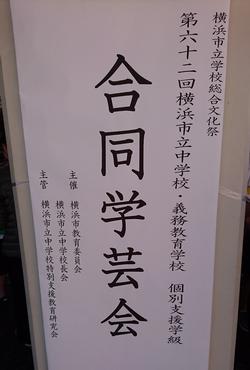 横浜市立学校総合文化祭
第六十二回横浜市立中学校 義務教育学校 個別支援学級
合同学芸会
主催 横浜市教育委員会
横浜市立中学校長会
主管 横浜市立中学校特別支援教育研究会